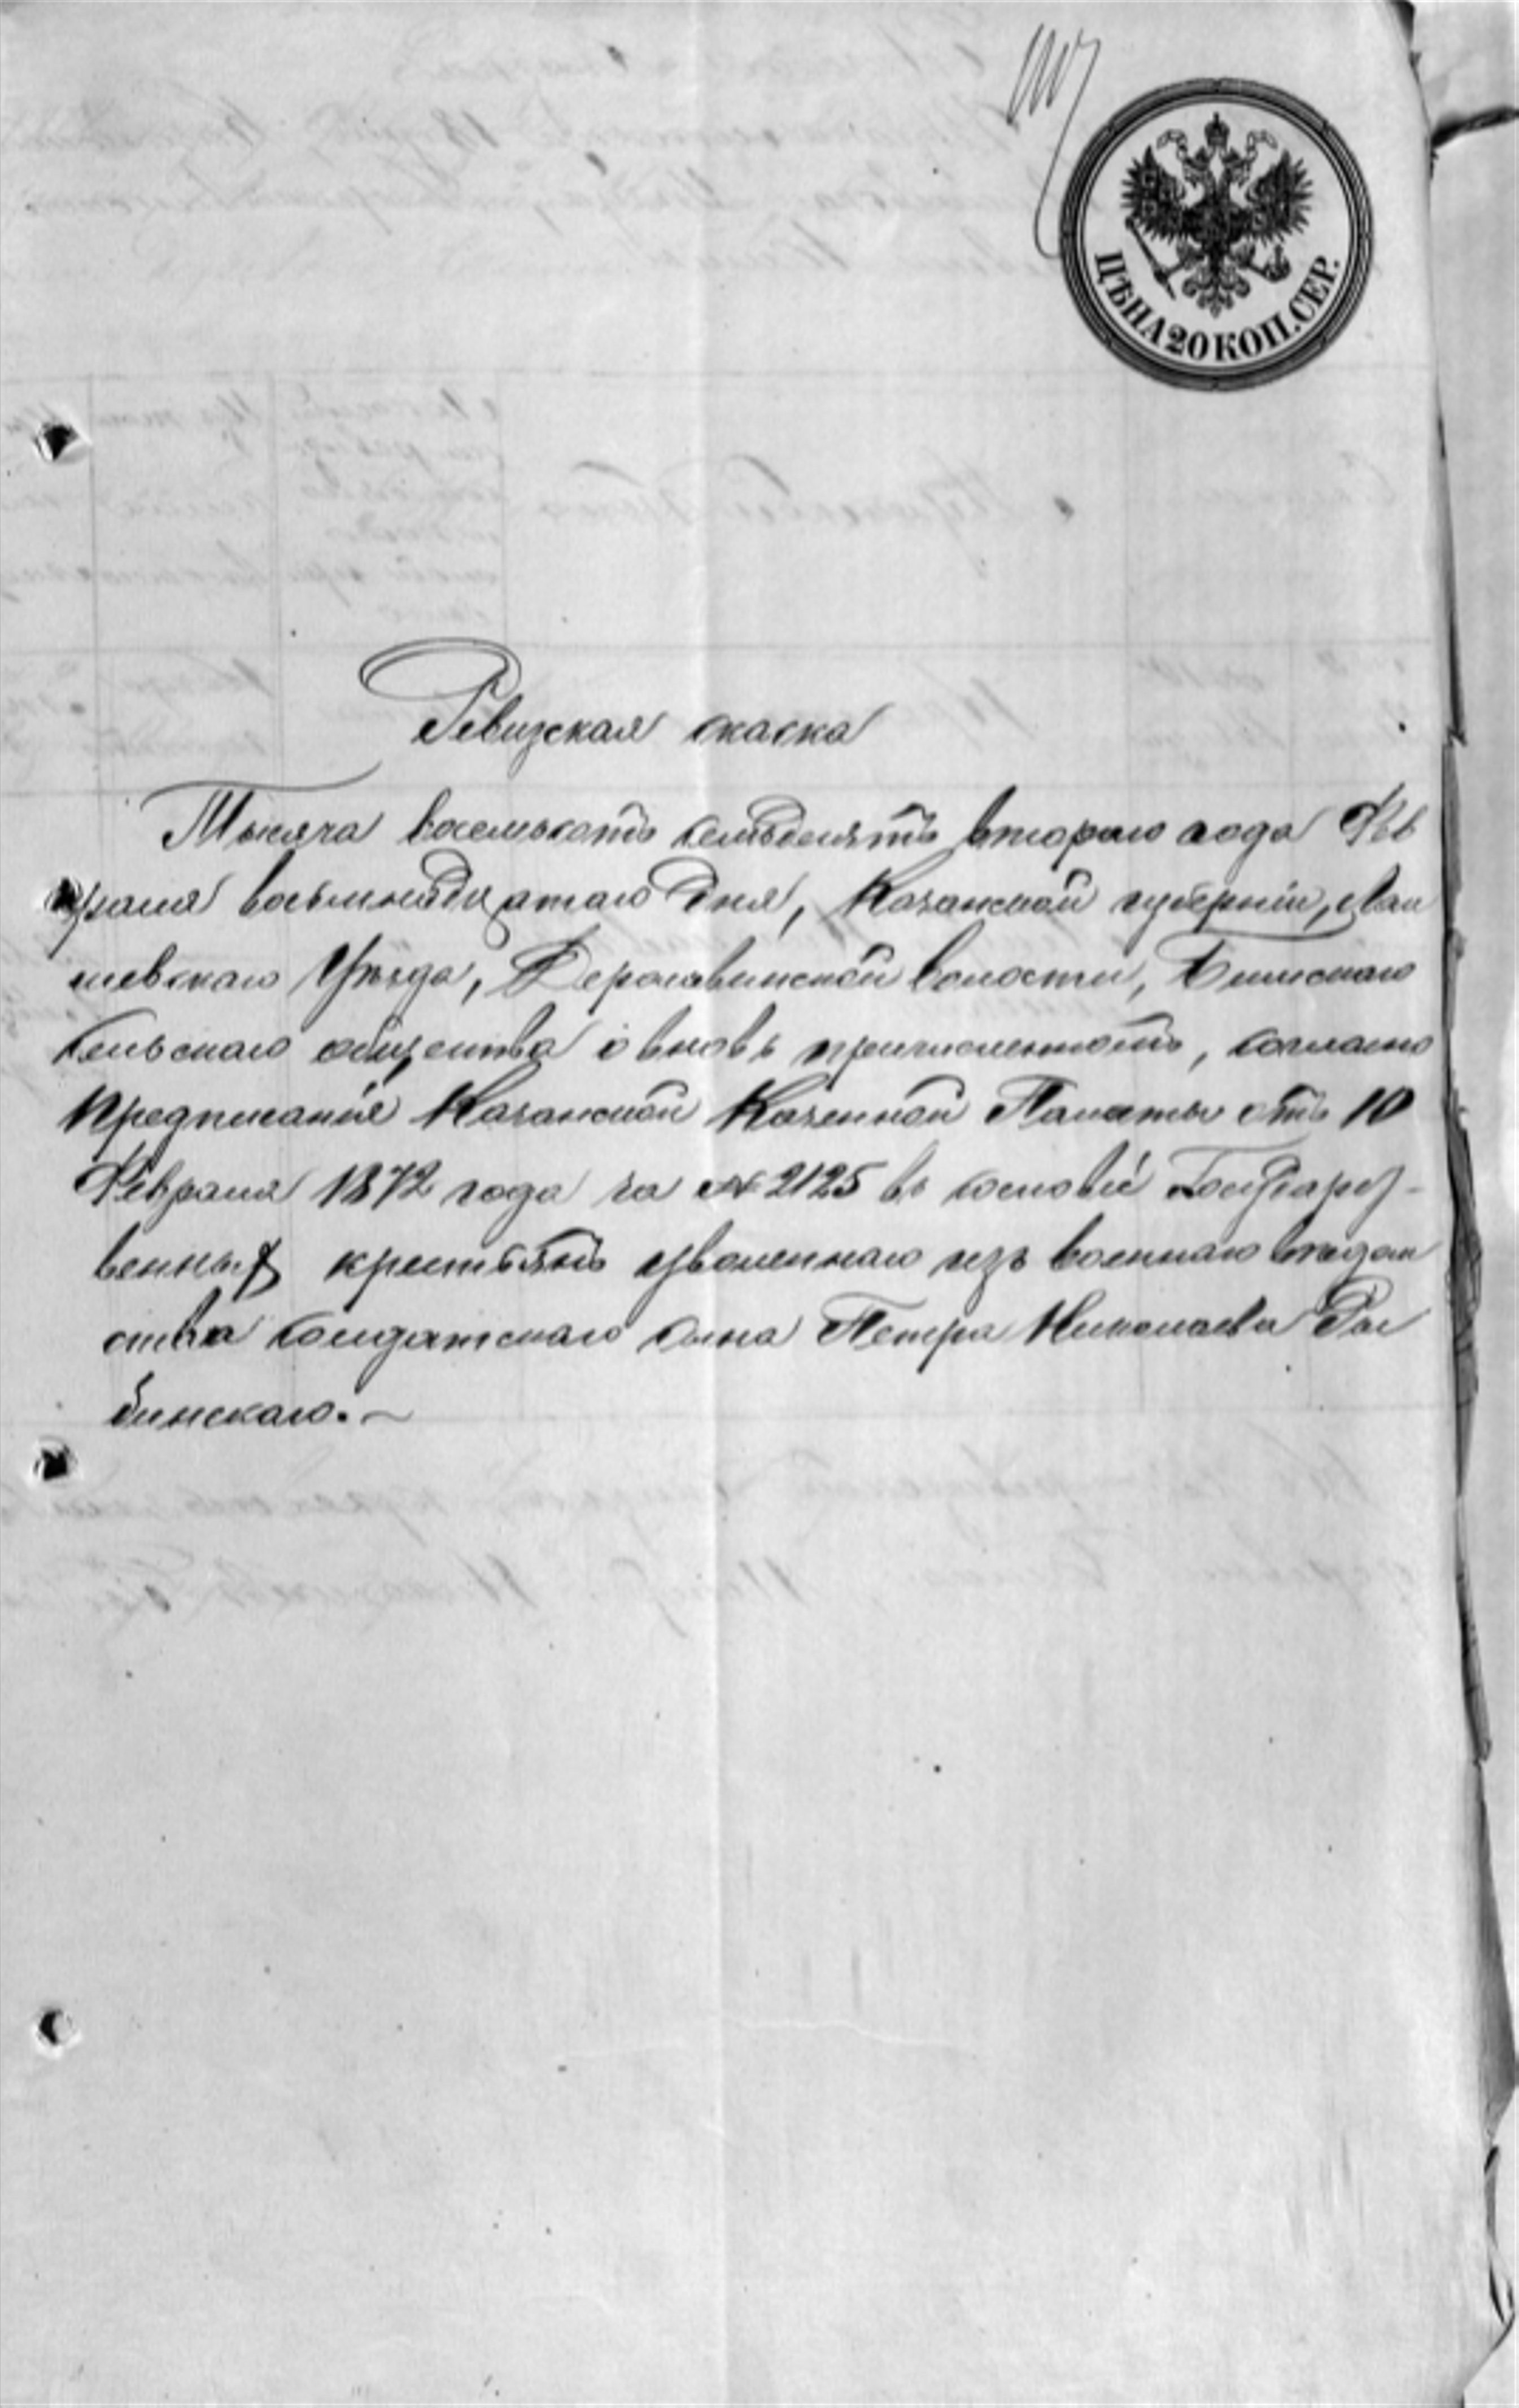 ЦѢНА 20 КОП. СЕР.
Ревизская скаска
Тысяча восемьсотъ семьдесятъ втораго года Фев
раля восьмнадцатаго дня, Казанской губерніи, Лаи
шевскаго Уѣзда, Державинской волости, Бимскаго
сельскаго общества о вновь причисленномъ, согласно
предписанія Казанской Казенной Палаты отъ 10
Февраля 1872 года за № 2125 въ сословіе Государ-
венныхъ крестьянъ уволеннаго изъ военнаго вѣдом
ства солдатскаго сына Петра Николаева Ря
бинскаго.